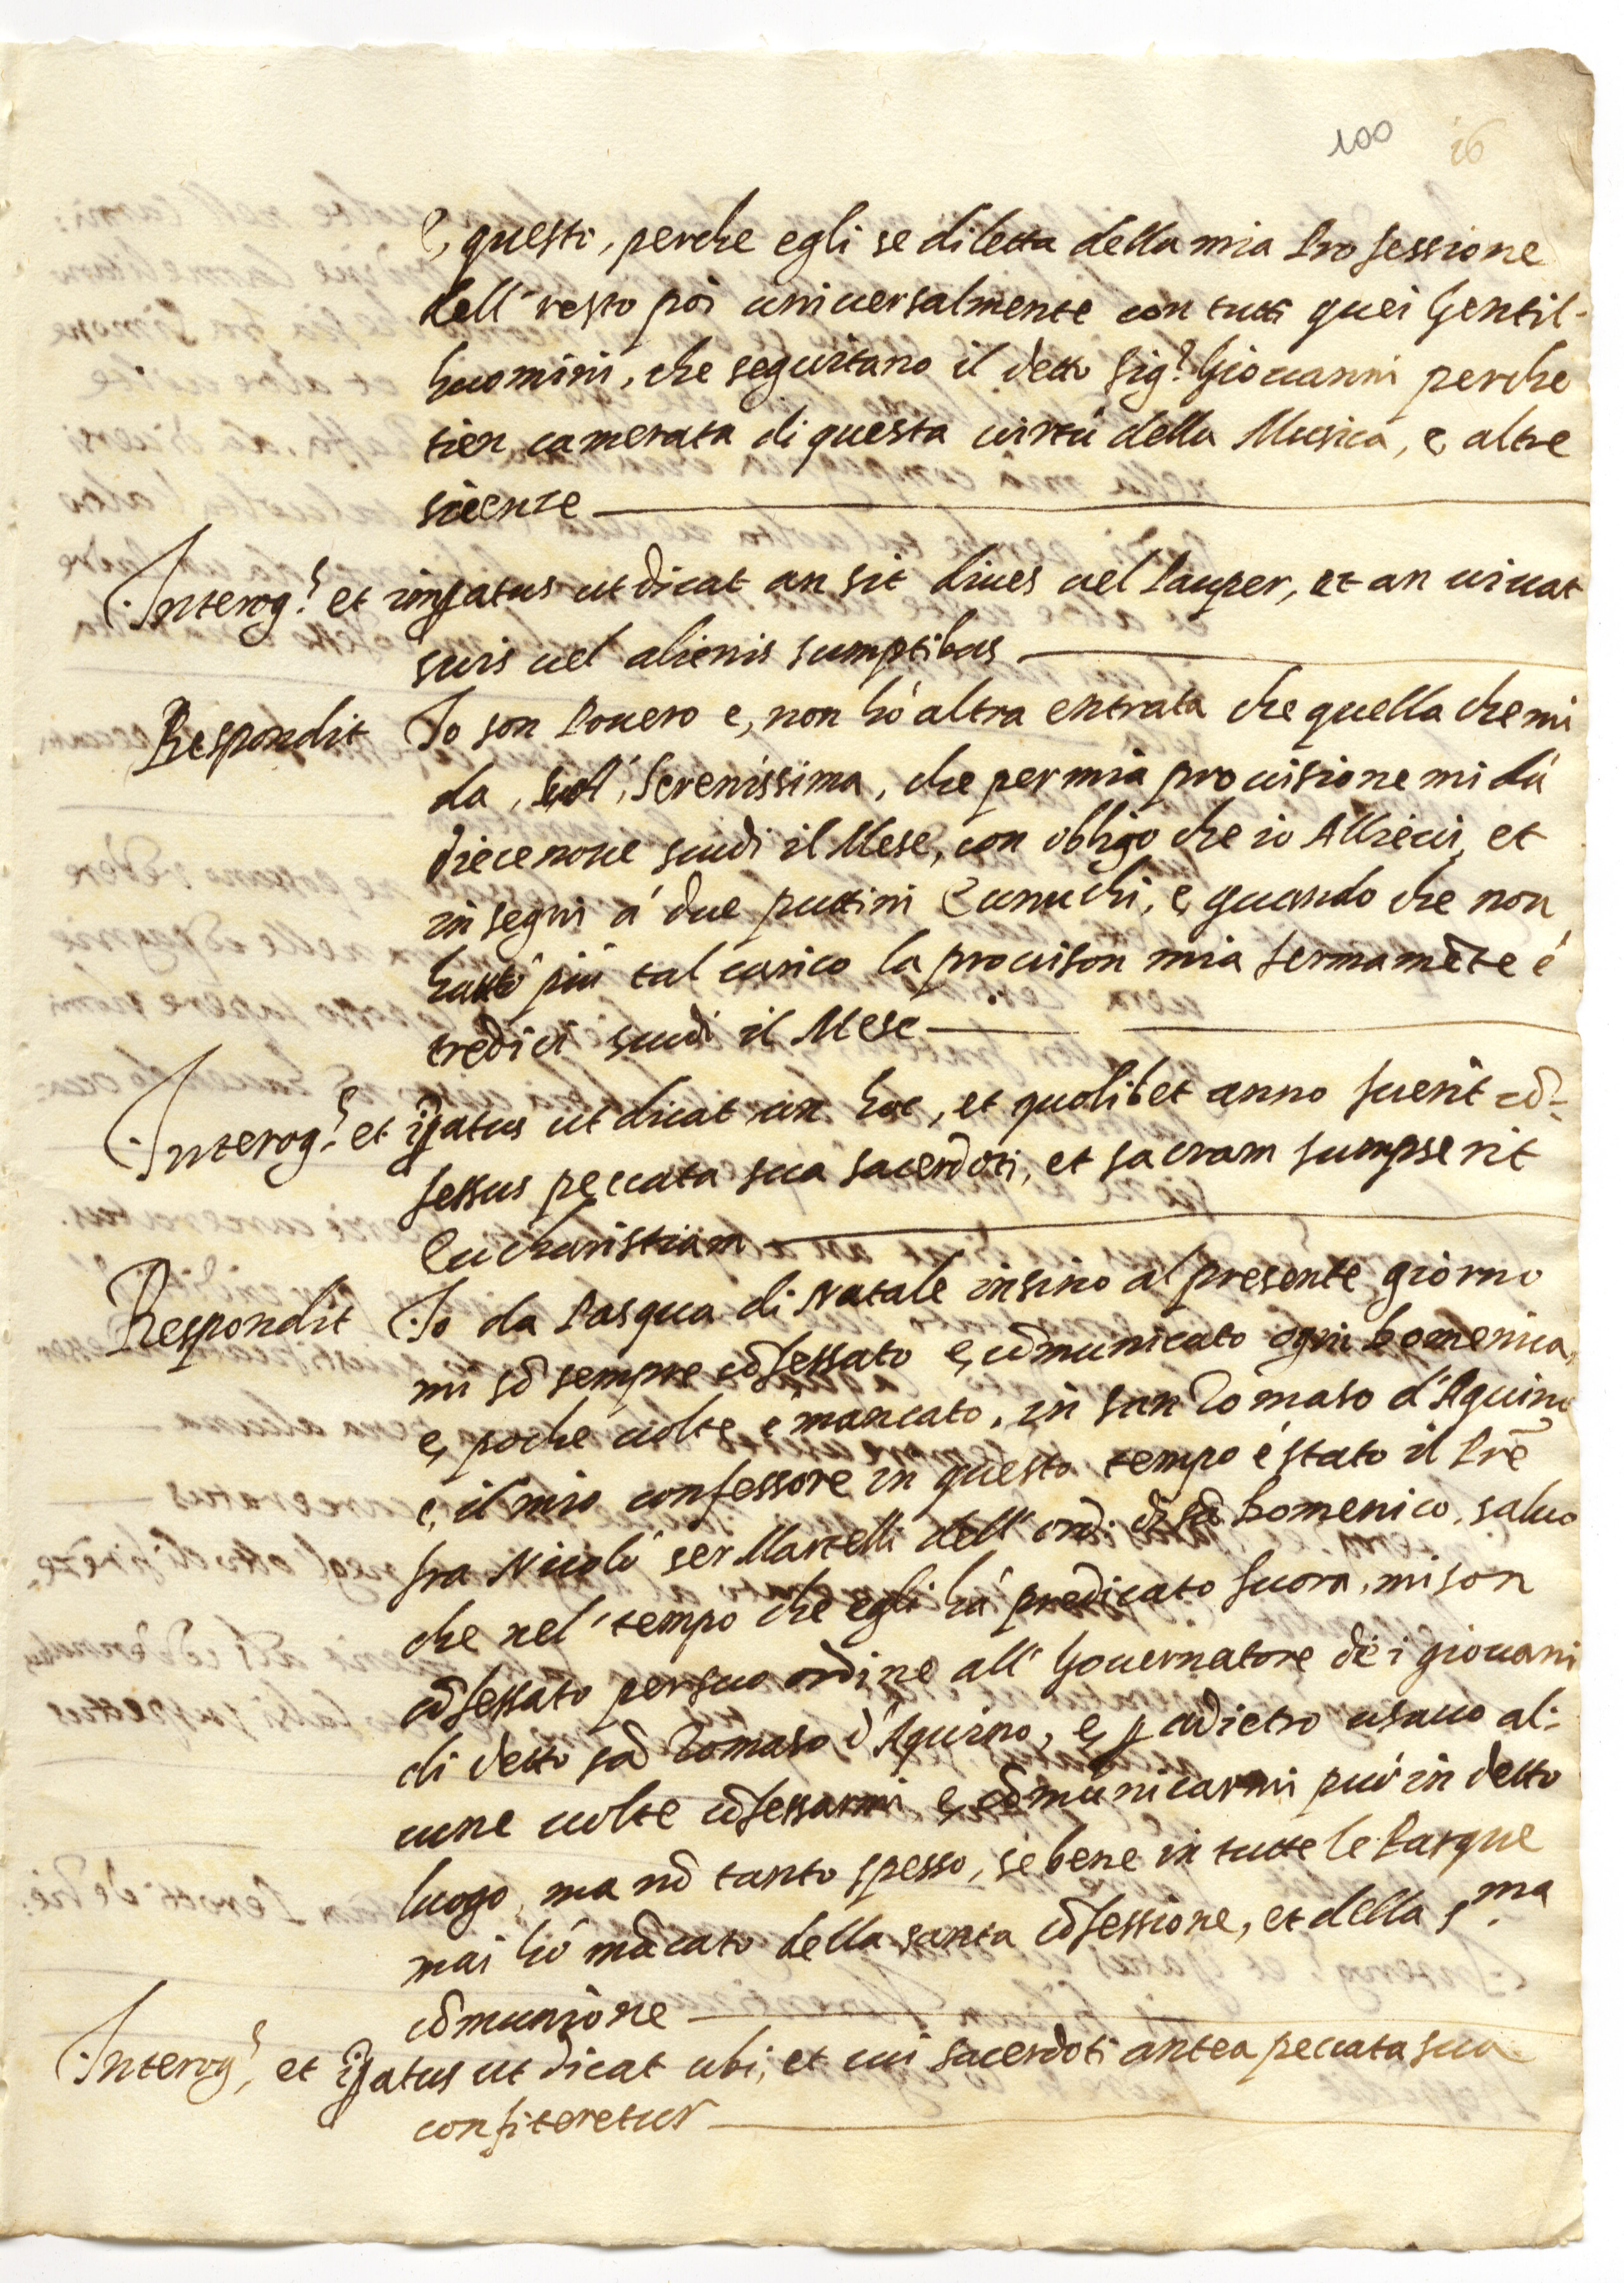 100 26
e, questi, perche egli se diletta della mia Professione
dell' resto poi uniuersalmente con tutti quei Gentil-
huomini, che seguitano il detto Sig.r Giouanni perche
tien camerata di questa uirtù della Musica, e, altre
scienze
Interog.s et impatus ut dicat an sit diues uel Pauper, et an uiuat
suis uel alienis sumptibus
Respondit Io son Pouero e, non hò altra entrata che quella che mi
da, Sua Serenissima, che per mia prouisione mi dà
diecenoue scudi il Mese, con obligo che io Allieui, et
insegni à due puttini Eunuchi, e, quando che non
più tal carico la prouison mia fermamẽte é
tredici scudi il Mese
Interog.s et ipatus ut dicat an hoc, et quolibet anno fuerit cõ-
fessus peccata sua sacerdoti, et sacram sumpserit
Eucharistiam
Respondit Io da Pasqua di Natale insino al presente giorno
mi sõ sempre cõfessato e, cõmunicato ogni Domenica,
e, poche uolte é mancato, in san Tomaso d'Aquino
e, il mio confessore in questo tempo é stato il Prẽ
fra Nicolò ser Martelli dell' ord: di sã Domenico, saluo
che nel' tempo che egli hà predicato fuora, mi son
cõfessato per suo ordine all' Gouernatore de i giouani
di detto sã Tomaso d'Aquino, e, p adietro usauo al-
cune uolte cõfessarmi e, cõmunicarmi pur in detto
luogo, ma nõ tanto spesso, se bene in tutte le Pasque
mai hò mãcato della santa cõfessione, et della s.ma
cõmunione
Interog.s et ipatus ut dicat ubi, et cui sacerdoti antea peccata sua
confiteretur